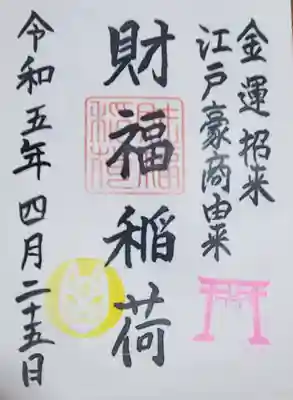 金運招来
江戸豪商由来
財福稲荷
令和五年四月二十五日